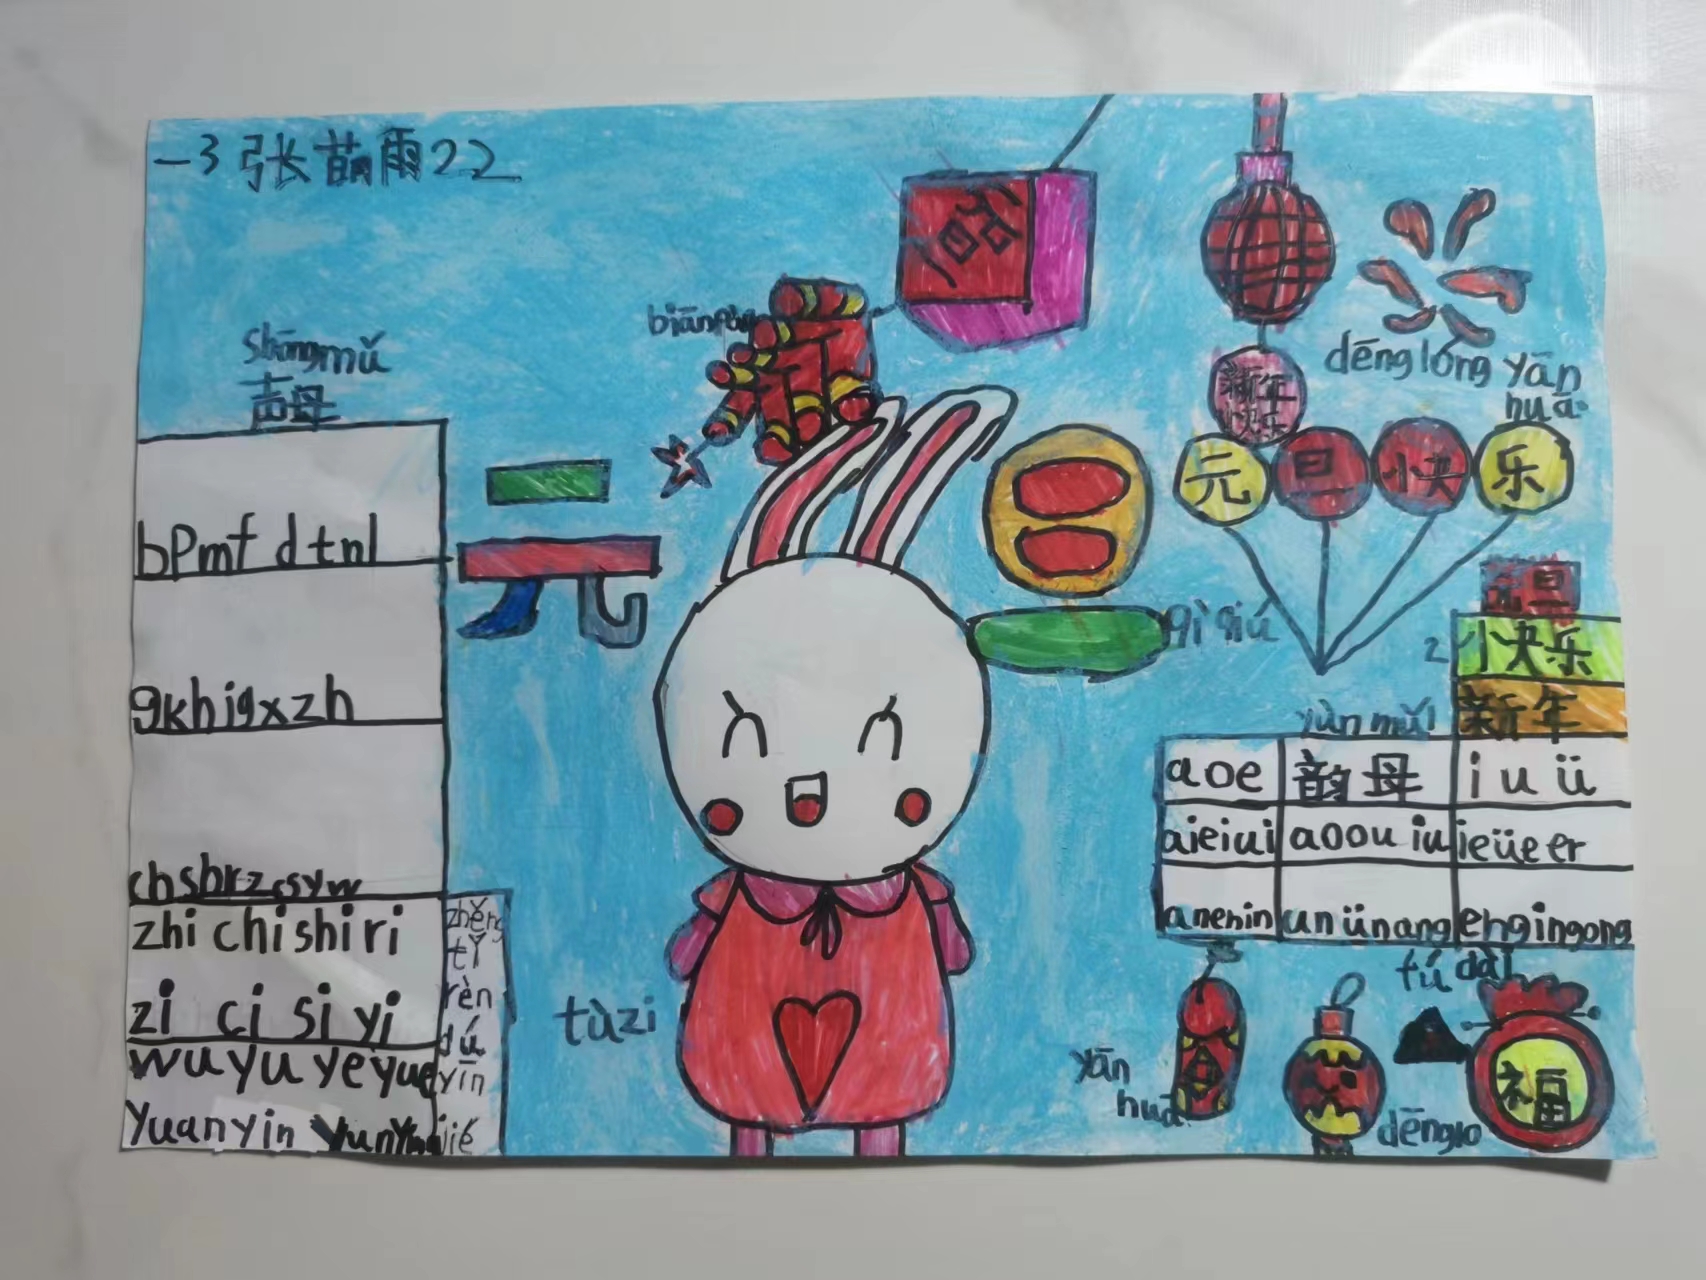 一3张萌雨22
biānpào
shēngmǔ
声母
bpmf dtnl
gkhjqxzh
chshrzcsyw
zhi chi shi ri
zi ci si yi
wu yu ye yue
yuan yin yun ying
zhěng
tǐ
rèn
dú
yīn
jié
元
旦
tùzi
福
dēnglóng
yān
huā
新年
快乐
元旦快乐
qìqiú
元旦
2
小快乐
新年
yùn mǔ
aoe 韵母 i u ü
aieiui aoou iu ieüe er
anenin unünang engingong
yān
huā
dēnglo
fú dài
福